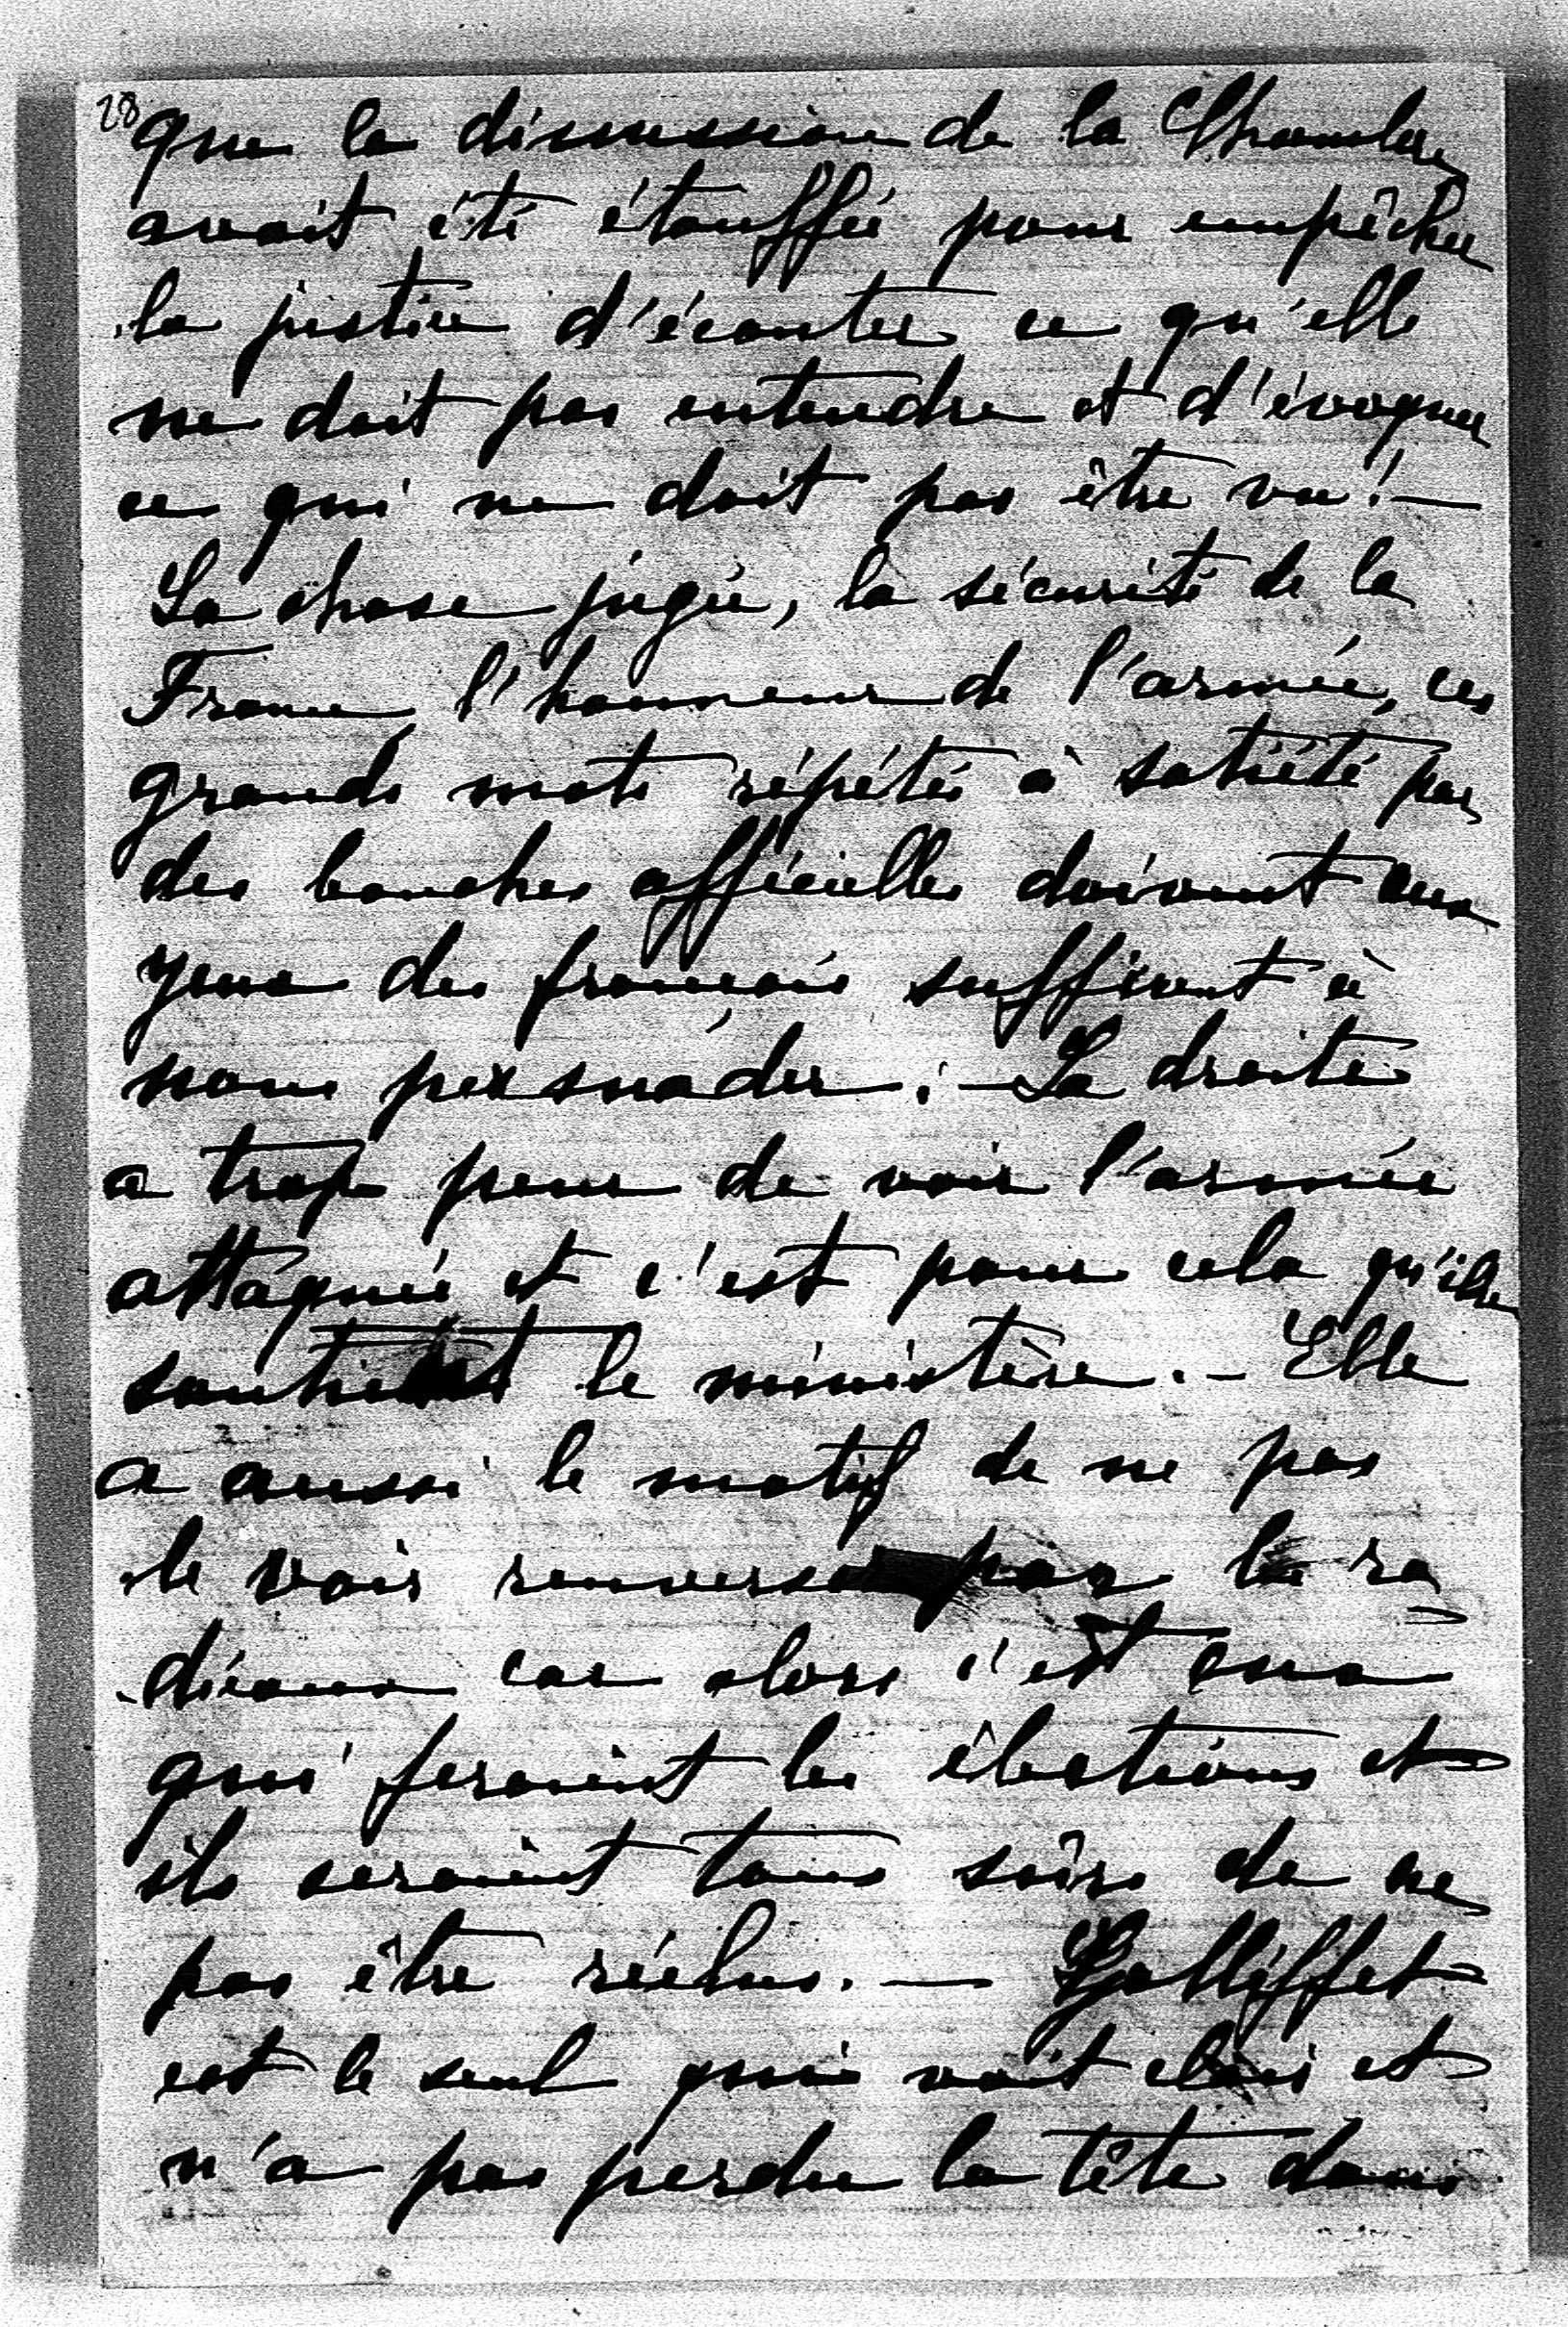 28
que la discussion de la Chambre
avait été étouffée pour empêcher
la justice d'écouter ce qu'elle
ne doit pas entendre et d'évoquer
ce qui ne doit pas être vu ! —
La chose jugée, la sécurité de la
France l'honneur de l'armée, ces
grands mots répétés à satiété par
des bouches officielles doivent aux
yeux des français suffirent à
nous persuader. — La droite
a trop peur de voir l'armée
attaquée et c'est pour cela qu'elle
soutient le ministère. — Elle
a aussi le motif de ne pas
le voir renverser par les ra
dicaux car alors c'est eux
qui feraient les élections et
ils seraient tous sûrs de ne
pas être réélus. — Galliffet
est le seul qui voit clair et
n'a pas perdu la tête dans